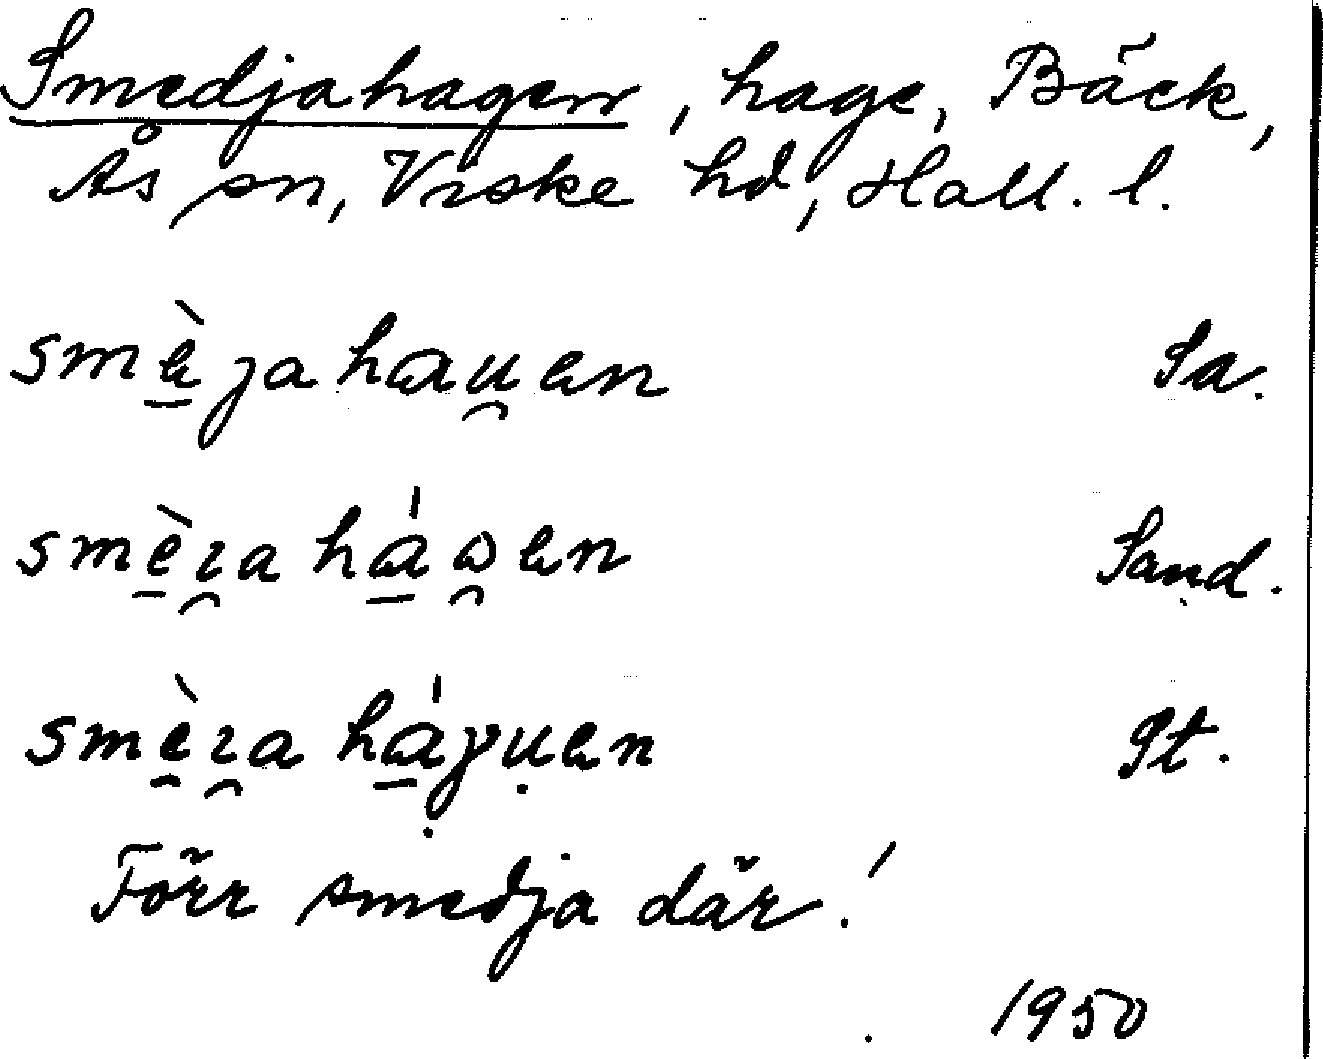 Smedjahagen, hage, Bäck,
Ås sn, Viske hd, Hall. l.
smè̠jahau̯en Sa.
smè̠ı̯ahá̠ω̯en Sand.
smèı̯ahá̠γụen St.
Förr smedja där!
1950